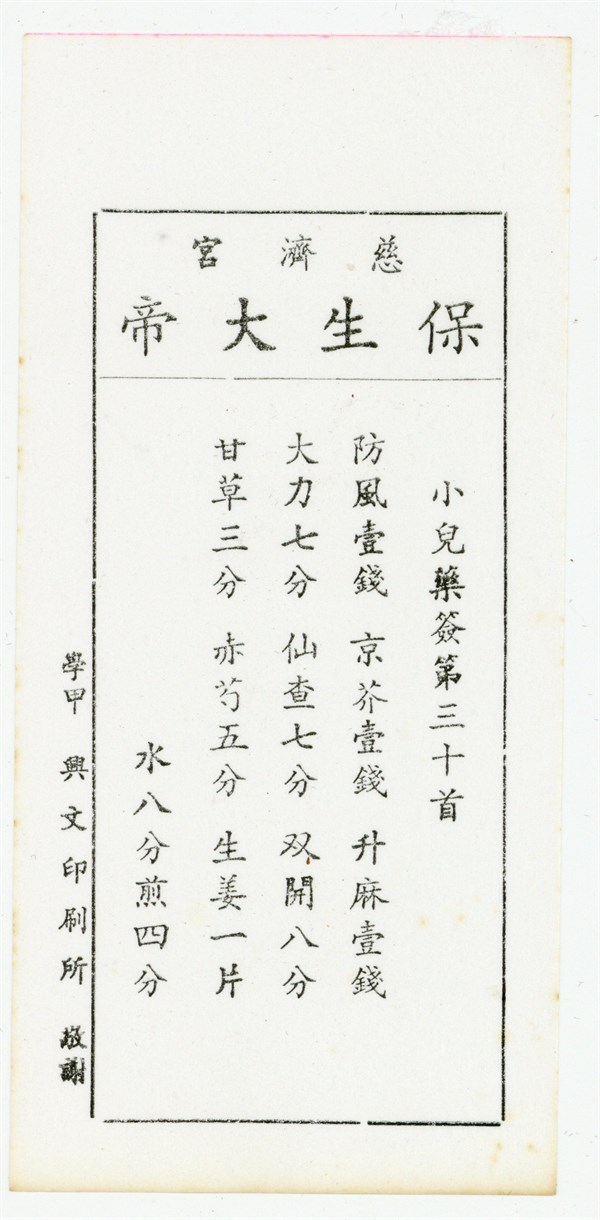 慈濟宮
保生大帝
小兒藥簽第三十首
防風壹錢 京芥壹錢 升麻壹錢
大力七分 仙查七分 双開八分
甘草三分 赤芍五分 生姜一片
水八分煎四分
學甲 興文印刷所 敬謝